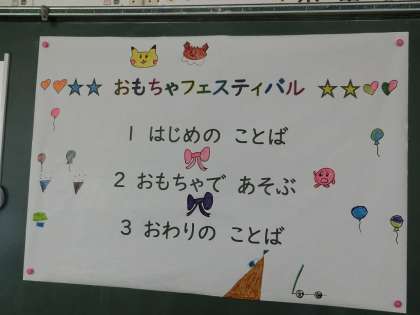 おもちゃフェスティバル
1 はじめの ことば
2 おもちゃで あそぶ
3 おわりの ことば